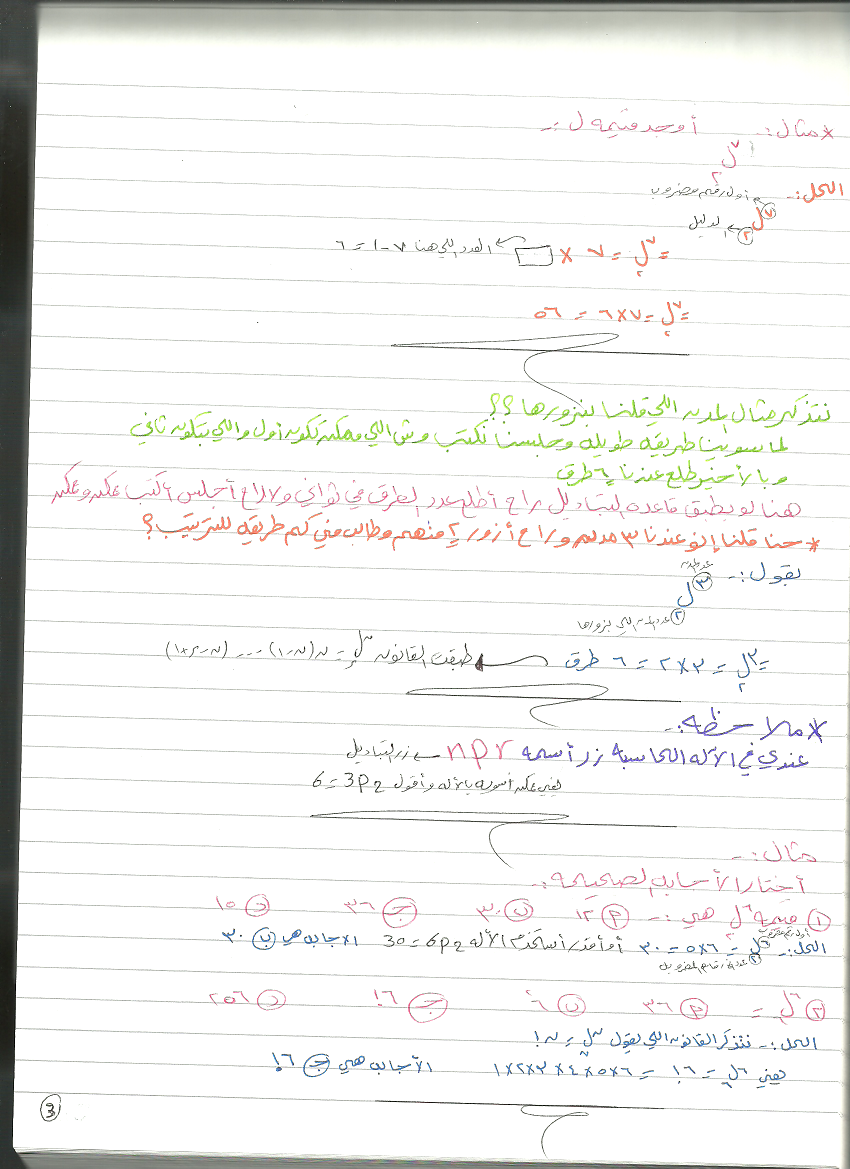 * مثال :- أوجد قيمة ل :-
٧ل٢
الحل :- أول رقم مضروب
٧ل٢ الدليل
= ٧ل٢ = ٧ × □ العدد اللي هنا ٧-١ = ٦
= ٧ل٢ = ٧×٦ = ٥٦
نتذكر مثال المدن اللي قلنا بنزورها ؟؟
لما سوينا طريقه طويله وجلسنا نكتب وش اللي ممكن تكون أول واللي بتكون ثاني
وبالأخير طلع عندنا ٦ طرق
هنا لو بطبق قاعدة التباديل راح أطلع عدد الطرق في ثواني ولا راح أجلس أكتب ممكن وممكن
* حنا قلنا إنو عندنا ٣ مدن وراح أزور ٢ منهم وطالب مني كم طريقه للترتيب ؟
بقول :- ٣ل٢ عدد المدن
عدد المدن اللي بزورها
= ٣ل٢ = ٣×٢ = ٦ طرق طبقت القانون نلر = ن(ن-١) ... (ن-ر+١)
* ملاحظه :-
عندي في الآله الحاسبة زر أسمه npr زر التباديل
يعني ممكن أسويه بالآله وأقول 3p2 = 6
مثال :-
أختار الأجابه الصحيحه :-
١ قيمة ٦ل٢ هي :- أ ١٢ ب ٣٠ ج ٣٦ د ١٥
الحل :- ٦ل٢ = ٦×٥ = ٣٠ أو أقدر أستخدم الآله 6p2 = 30 الاجابه هي ب ٣٠
أول رقم مضروب
عدد الأرقام المضروبه
٢ ٦ل٦ = أ ٣٦ ب ٦ ج ٦! د ٢٥٦
الحل :- نتذكر القانون اللي يقول نلن = ن!
يعني ٦ل٦ = ٦! = ٦×٥×٤×٣×٢×١ الأجابه هي ج ٦!
3